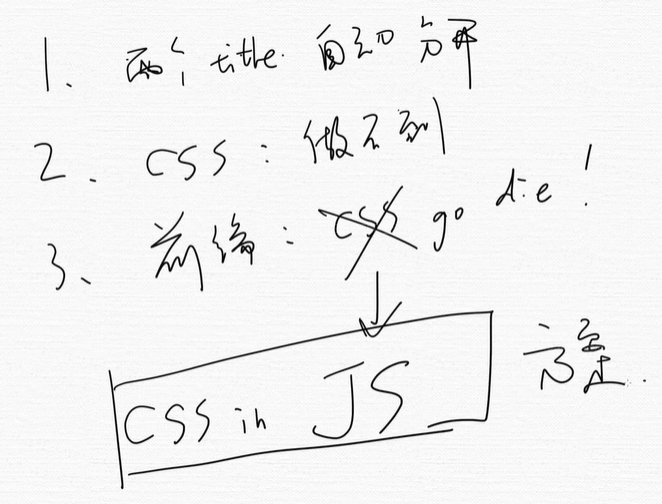 1、两个 title 自动分开
2、CSS：做不到
3、前端：CSS go die！
CSS in JS